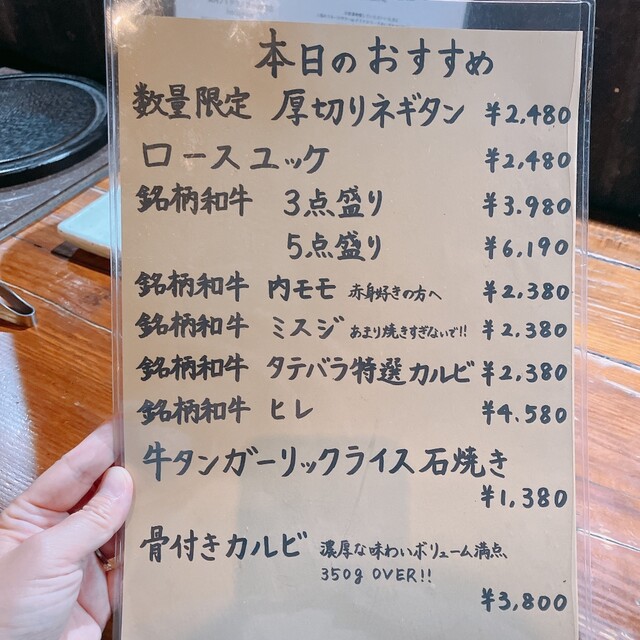 本日のおすすめ
数量限定 厚切りネギタン ¥2,480
ロースユッケ ¥2,480
銘柄和牛 3点盛り ¥3.980
5点盛り ¥6,190
銘柄和牛 内モモ 赤身好きの方へ ¥2,380
銘柄和牛 ミスジ あまり焼きすぎないで!! ¥2,380
銘柄和牛 タテバラ特選カルビ ¥2,380
銘柄和牛 ヒレ ¥4.580
牛タンガーリックライス石焼き
¥1,380
骨付きカルビ 濃厚な味わいボリューム満点
350g OVER!!
¥3,800